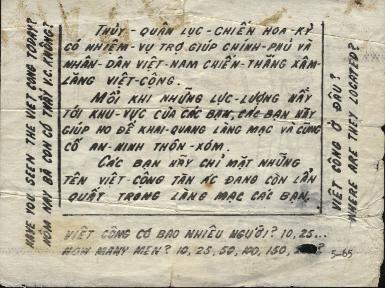 THỦY - QUÂN LỤC - CHIẾN HOA KỲ
CÓ NHIỆM - VỤ TRỢ GIÚP CHÍNH - PHỦ VÀ
NHÂN - DÂN VIỆT - NAM CHIẾN - THẮNG XÂM -
LĂNG VIỆT - CỘNG.
MỖI KHI NHỮNG LỰC - LƯỢNG NẦY
TỚI KHU - VỰC CỦA CÁC BẠN, CÁC BẠN HÃY
GIÚP HỌ ĐỂ KHAI - QUANG LÀNG MẠC VÀ CỦNG
CỐ AN - NINH THÔN - XÓM.
CÁC BẠN HÃY CHỈ MẶT NHỮNG
TÊN VIỆT - CỘNG TÀN ÁC ĐANG CÒN LẨN
QUẤT TRONG LÀNG MẠC CÁC BẠN.
HAVE YOU SEEN THE VIET CONG TODAY?
HÔM NAY BÀ CON CÓ THẤY V.C. KHÔNG?
VIỆT CỘNG Ở ĐÂU?
WHERE ARE THEY LOCATED?
VIỆT CỘNG CÓ BAO NHIÊU NGƯỜI? 10, 25...
HOW MANY MEN? 10, 25, 50, 100, 150, ?
5-65